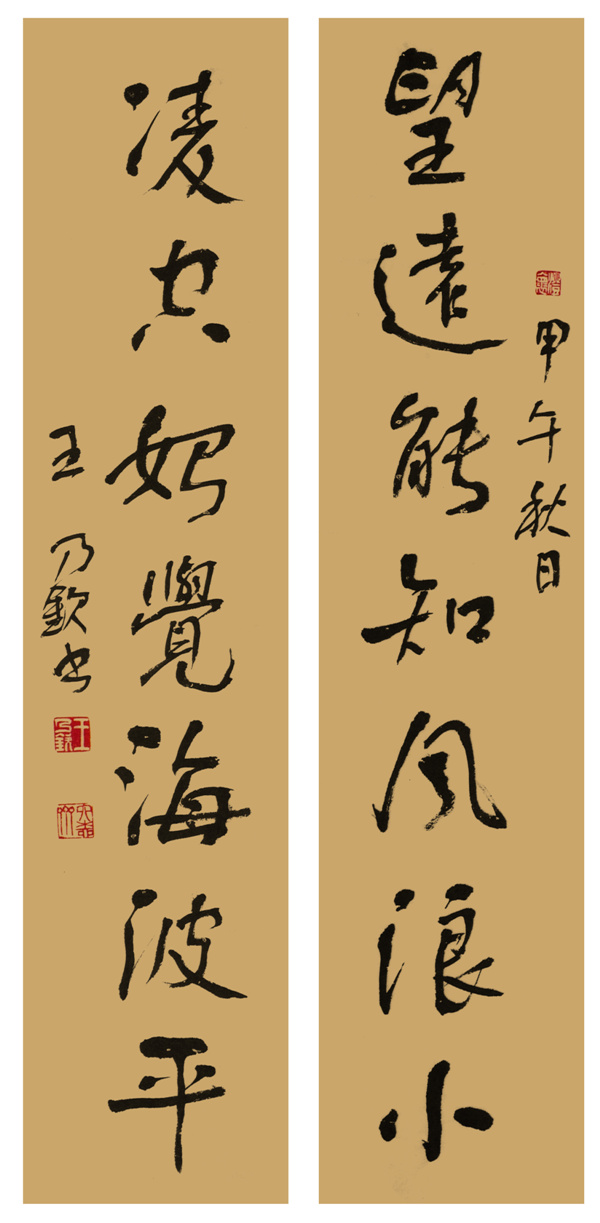 甲午秋日
望遠能知風浪小
凌空始覺海波平
王乃欽書